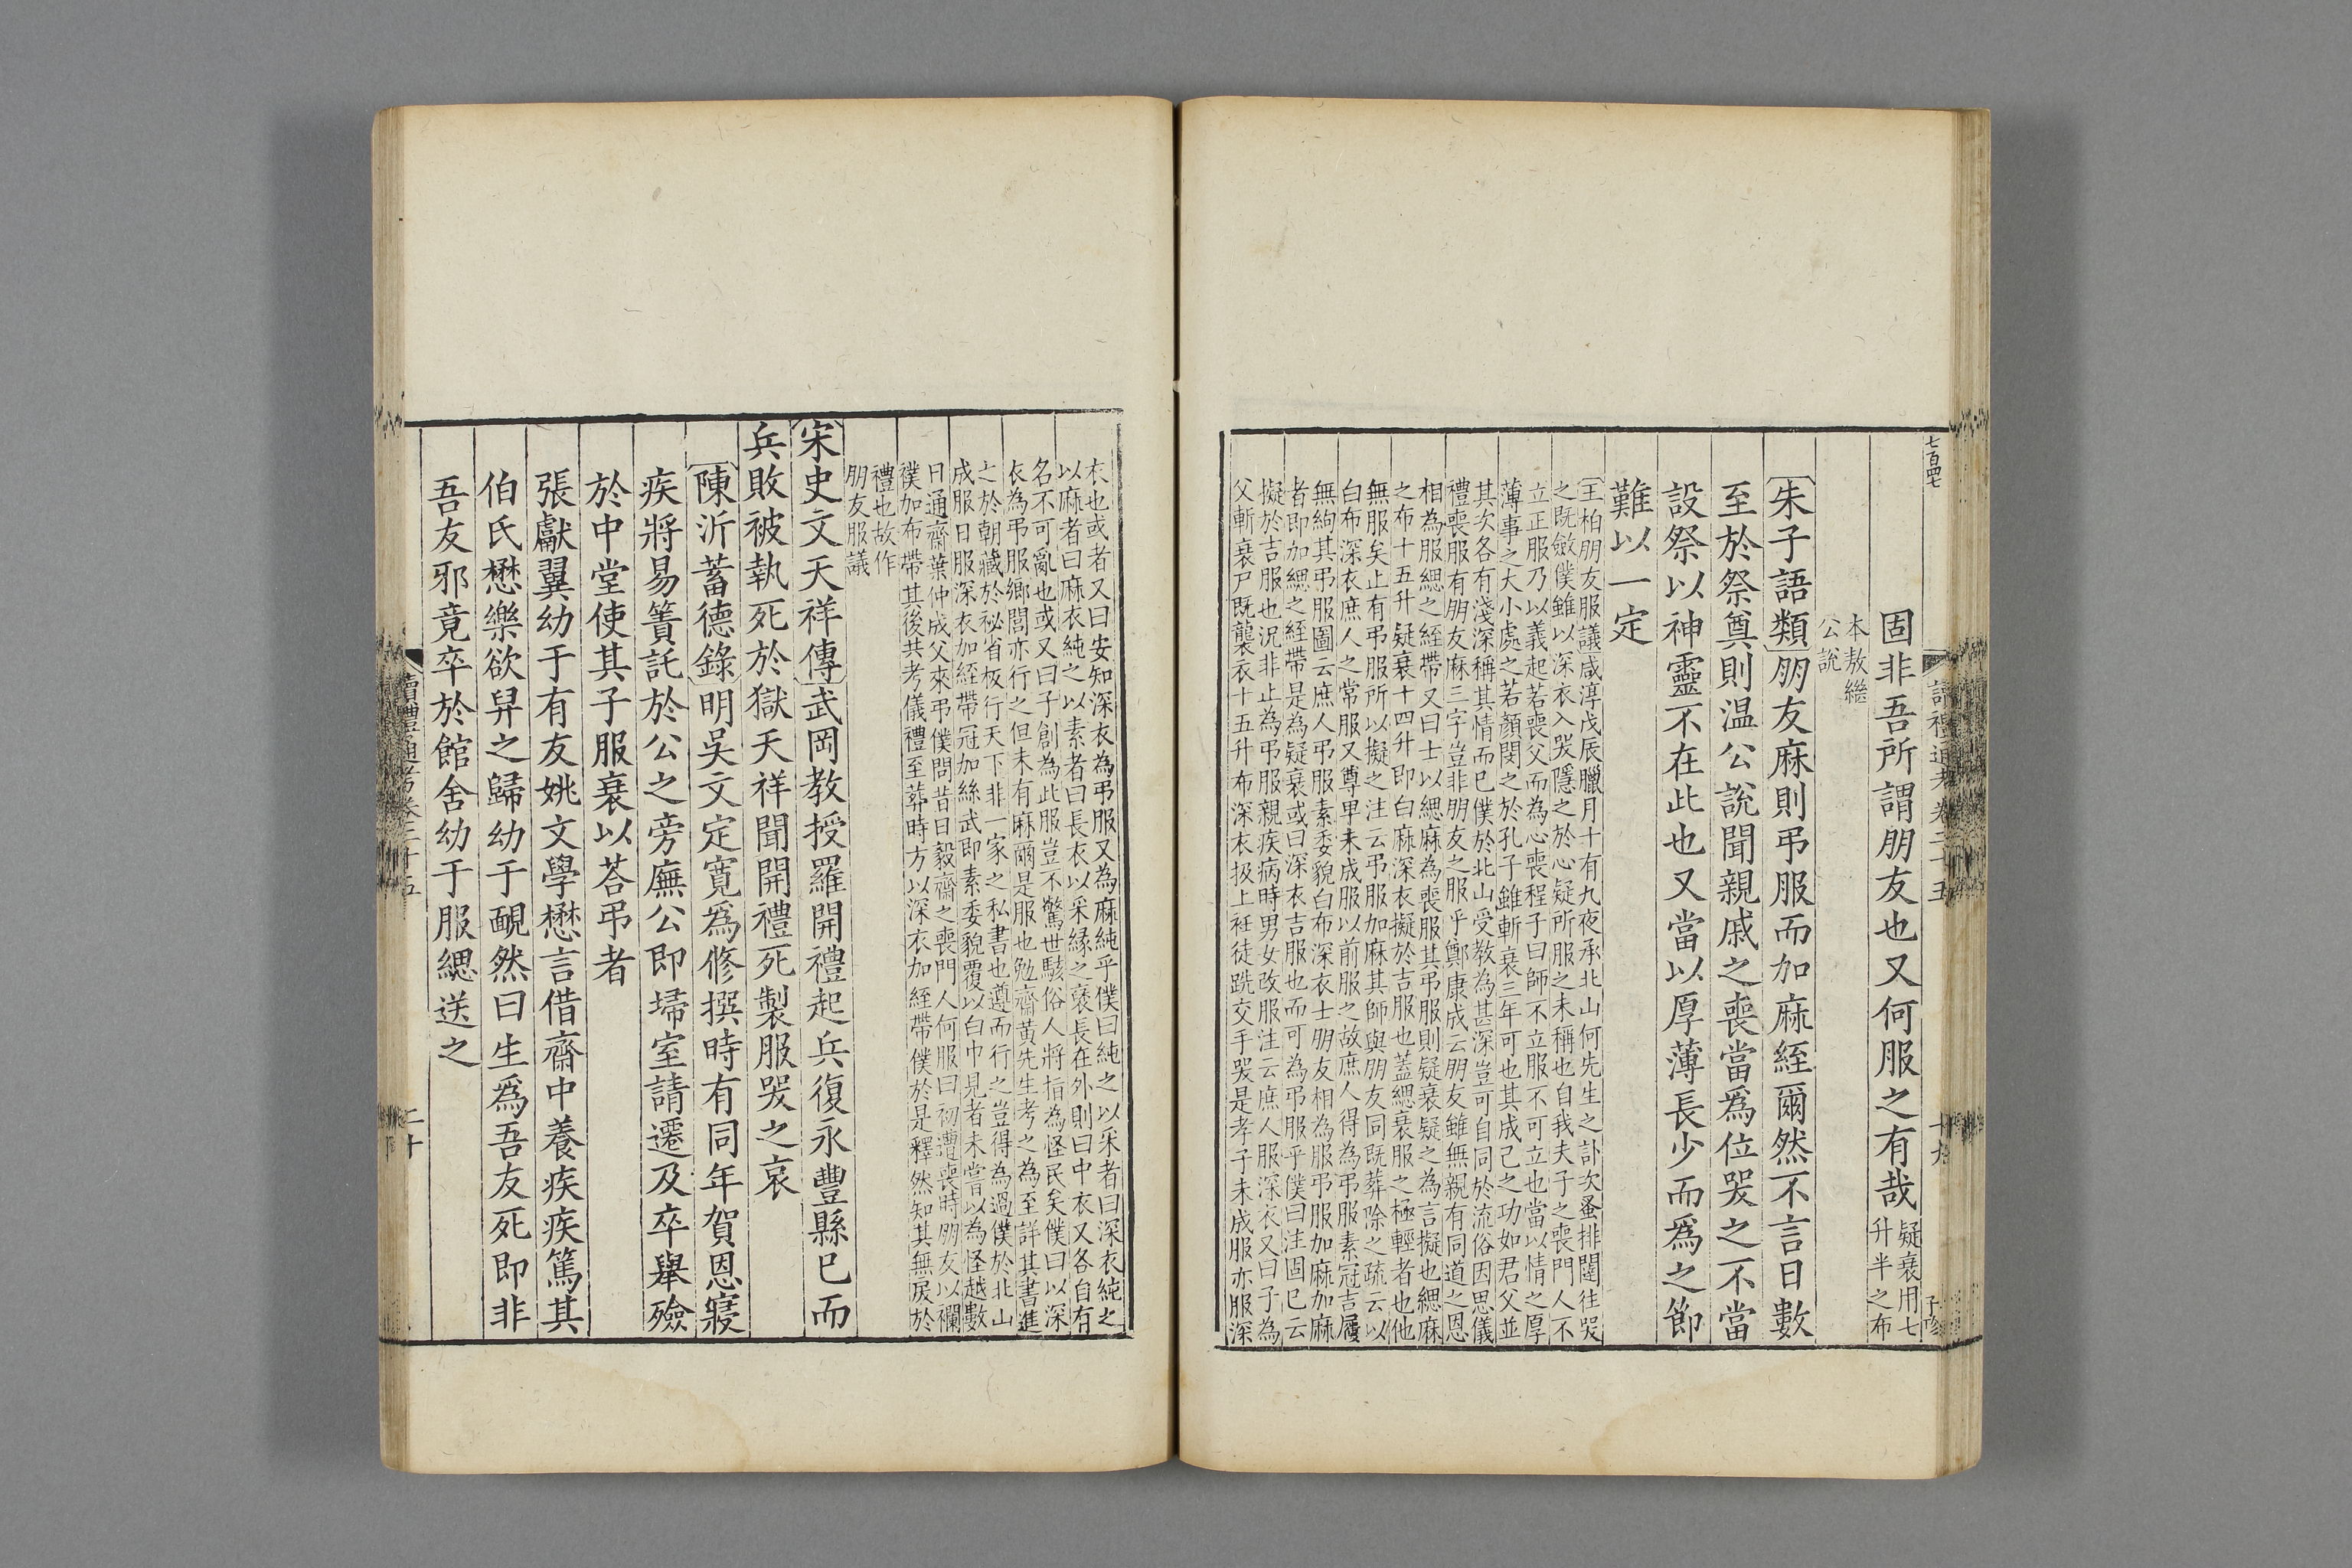 七百四七
讀禮通考卷二十五
十九
子珍
固非吾所謂朋友也又何服之有哉疑衰用七
升半之布
本敖繼
公說
朱子語類朋友麻則弔服而加麻絰爾然不言日數
至於祭奠則温公說聞親戚之喪當爲位哭之不當
設祭以神靈不在此也又當以厚薄長少而爲之節
難以一定
王柏朋友服議咸淳戊辰臘月十有九夜承北山何先生之訃次蚤排闥往哭
之既斂僕雖以深衣入哭隱之於心疑所服之未稱也自我夫子之喪門人不
立正服乃以義起若喪父而為心喪程子曰師不立服不可立也當以情之厚
薄事之大小處之若顏閔之於孔子雖斬衰三年可也其成己之功如君父並
其次各有淺深稱其情而已僕於北山受教為甚深豈可自同於流俗因思儀
禮喪服有朋友麻三字豈非朋友之服乎鄭康成云朋友雖無親有同道之恩
相為服緦之絰帶又曰士以緦麻為喪服其弔服則疑衰疑之為言擬也緦麻
之布十五升疑衰十四升即白麻深衣擬於吉服也蓋緦衰服之極輕者也他
無服矣止有弔服所以擬之注云弔服加麻其師與朋友同既葬除之疏云以
白布深衣庶人之常服又尊卑未成服以前服之故庶人得為弔服素冠吉屨
無絇其弔服圖云庶人弔服素委貌白布深衣士朋友相為服弔服加麻加麻
者即加緦之絰帶是為疑衰或曰深衣吉服也而可為弔服乎僕曰注固已云
擬於吉服也況非止為弔服親疾病時男女改服注云庶人服深衣又曰子為
父斬衰尸既襲衣十五升布深衣扱上衽徒跣交手哭是孝子未成服亦服深
衣也或者又曰安知深衣為弔服又為麻純乎僕曰純之以采者曰深衣純之
以麻者曰麻衣純之以素者曰長衣以采緣之袞長在外則曰中衣又各自有
名不可亂也或又曰子創為此服豈不驚世駭俗人將指為怪民矣僕曰以深
衣為弔服鄉閭亦行之但未有麻爾是服也勉齋黃先生考之為至詳其書進
之於朝藏於祕省板行天下非一家之私書也遵而行之豈得為過僕於北山
成服日服深衣加絰帶冠加絲武即素委貌覆以白巾見者未嘗以為怪越數
日通齋葉仲成父來弔僕問昔日毅齋之喪門人何服曰初遭喪時朋友以襴
襆加布帶其後共考儀禮至葬時方以深衣加絰帶僕於是釋然知其無戾於
禮也故作
朋友服議
宋史文天祥傳武岡教授羅開禮起兵復永豐縣已而
兵敗被執死於獄天祥聞開禮死製服哭之哀
陳沂蓄德錄明吳文定寬爲修撰時有同年賀恩寢
疾將易簀託於公之旁廡公即埽室請遷及卒舉殮
於中堂使其子服衰以荅弔者
張獻翼幼于有友姚文學懋言借齋中養疾疾篤其
伯氏懋樂欲舁之歸幼于艴然曰生爲吾友死即非
吾友邪竟卒於館舍幼于服緦送之
讀禮通考卷二十五
二十